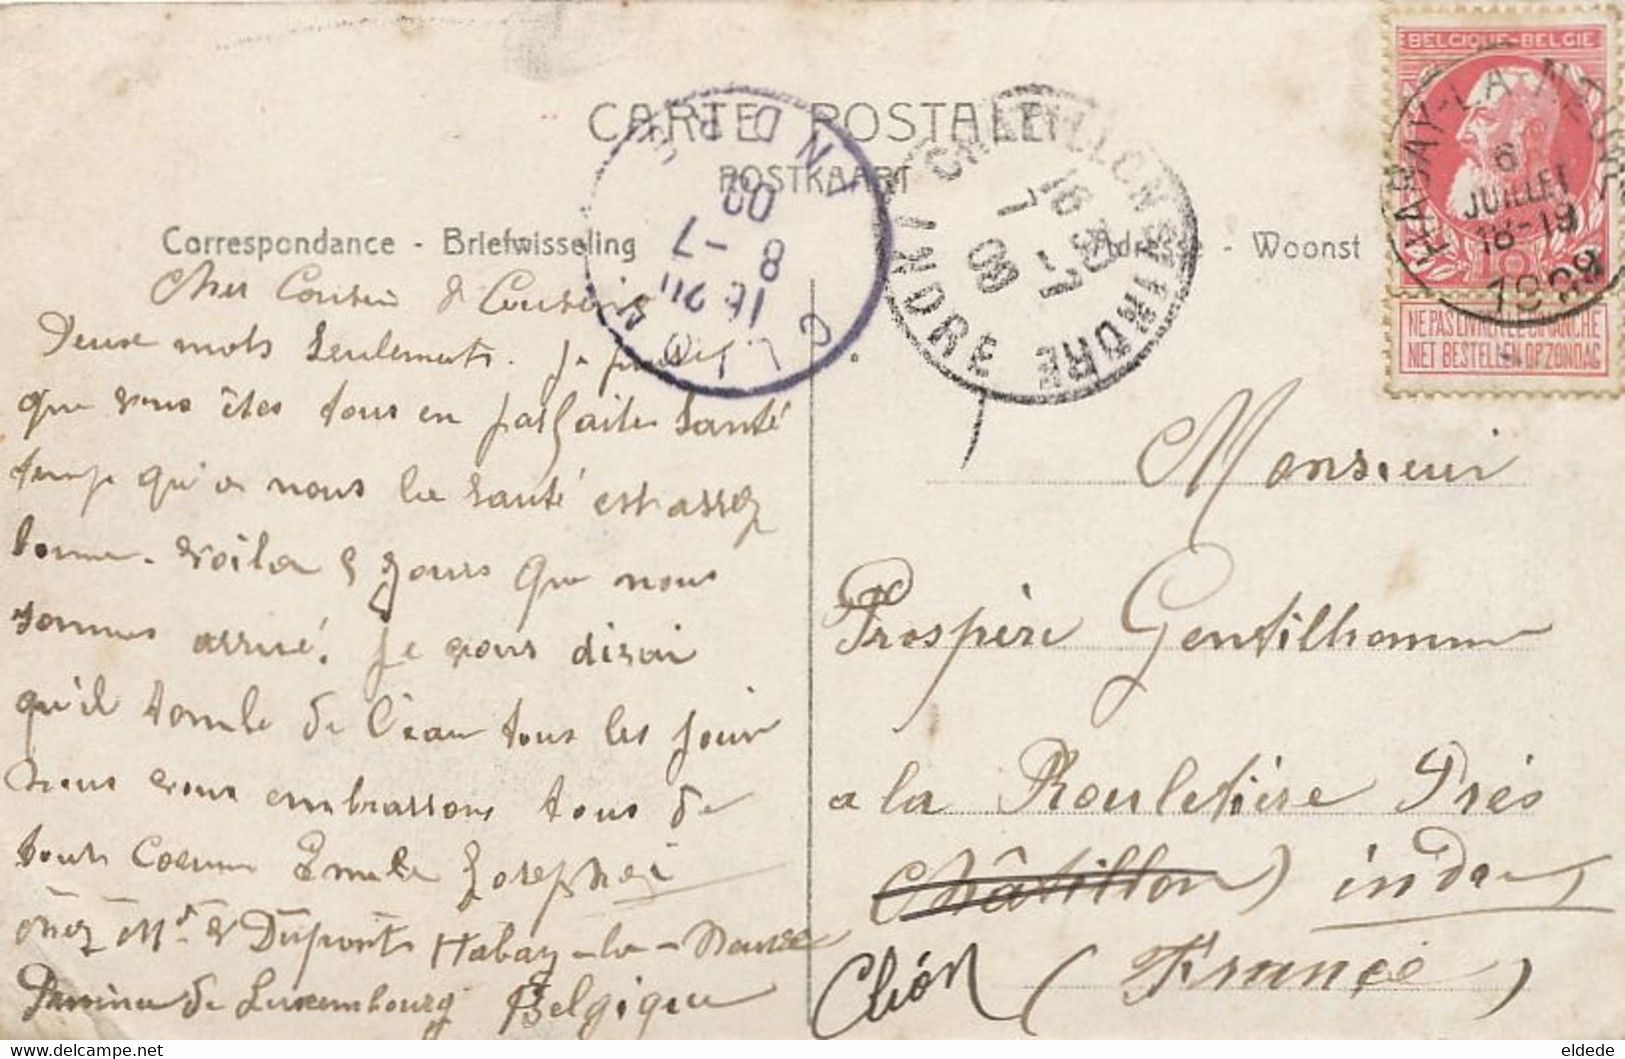 CARTE POSTALE
POSTKAART
Correspondance - Briefwisseling
Adresse - Woonst
BELGIQUE-BELGIE
HABAY-LA-NEUVE
6
JUILLET
18-19
1908
NE PAS LIVRER LE DIMANCHE
NIET BESTELLEN OP ZONDAG
CHATILLON S INDRE
INDRE
16
7
08
CLION
INDRE
16 20
8 -7
08
Cher Cousin & Cousine
Deux mots seulements. Je pense
que vous êtes tous en parfaite santé
temps qu'a nous la santé est assez
bonne. voila 5 Jours que nous
sommes arrivé. Je vous dirai
qu'il tombe de l'eau tous les jour
nous vous embrassons tous de
tout Coeur Emile Josephe
chez Mr & Dupont Habay-la-Neuve
Luxembourg Belgique
Monsieur
Prospère Gentilhomme
a la Rouletière Près
Châtillon indre
Clion (France)
eldede
delcampe.net